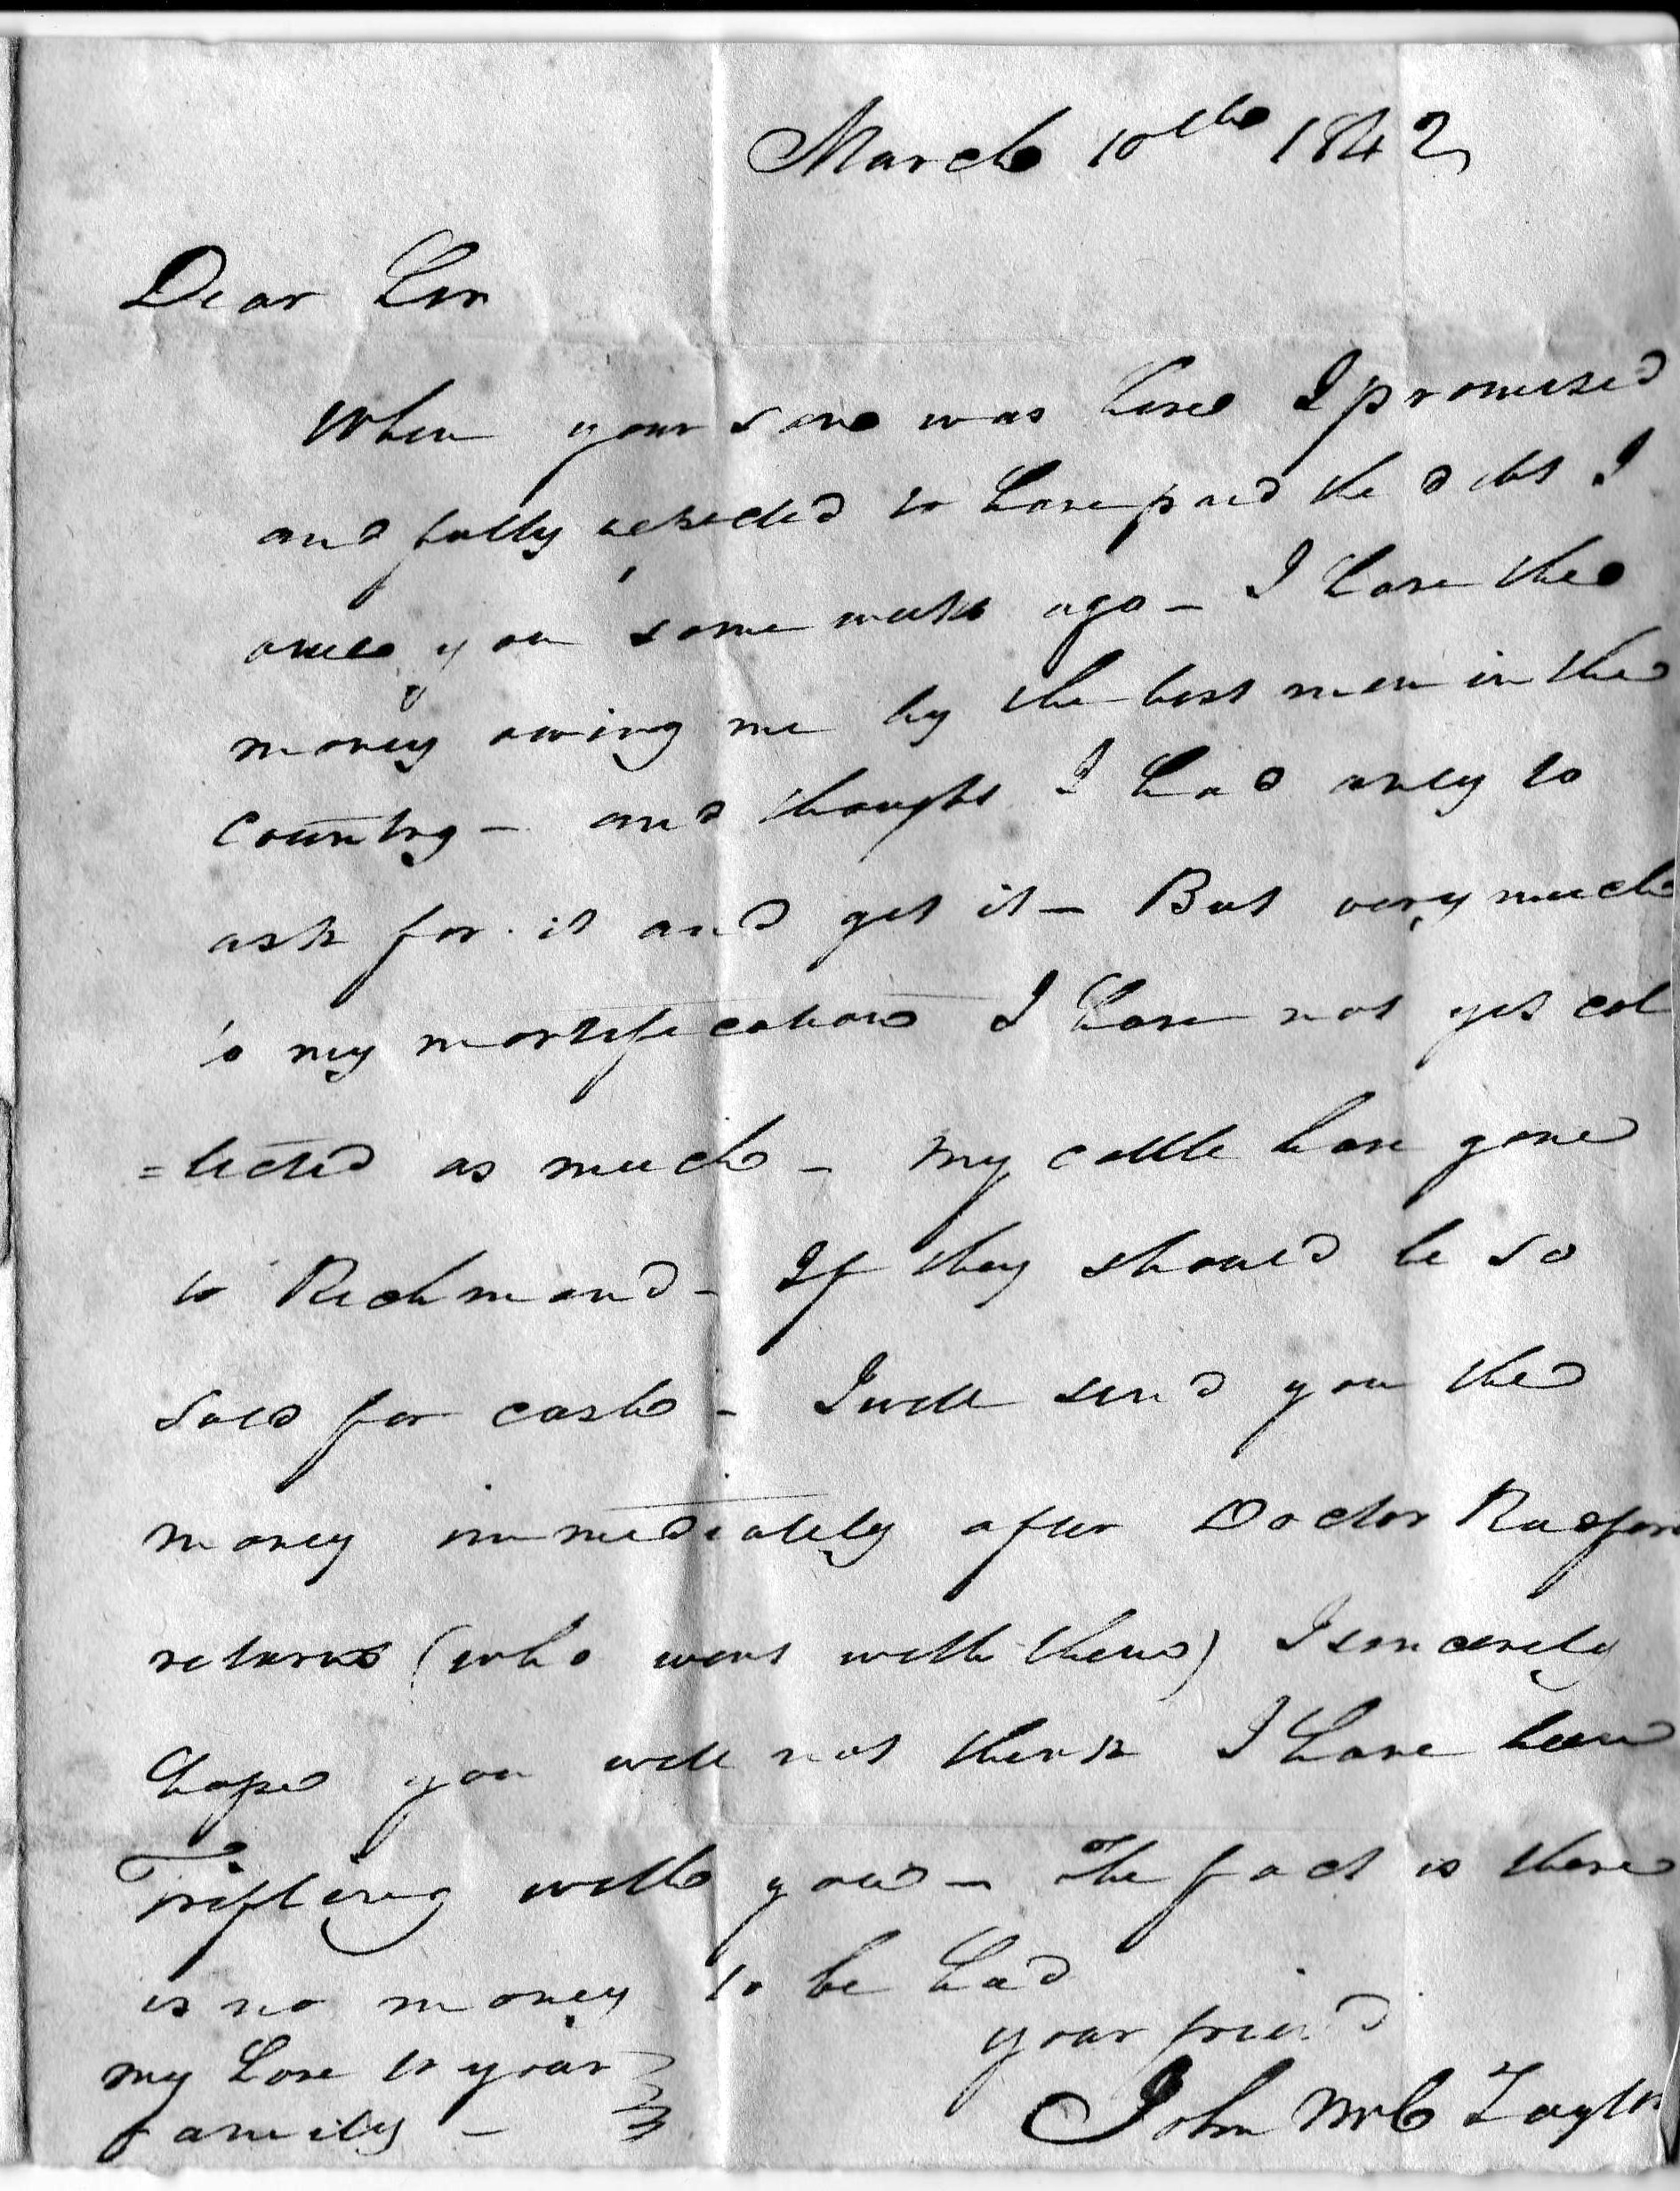 March 10th 1842
Dear Sir
When your son was here I promised
and fully expected to have paid the debt I
owed you some weeks ago - I have the
money owing me by the best men in the
country - and thought I had only to
ask for it and get it - But very much
to my mortification I have not yet col
=lected as much - my cattle have gone
to Richmond - If they should be so
sold for cash - I will send you the
money immediately after Doctor Radford
returns (who went with them) I sincerely
hope you will not think I have been
Trifling with you - The fact is there
is no money to be had
your friend
my Love to your
family -
John McC Taylor